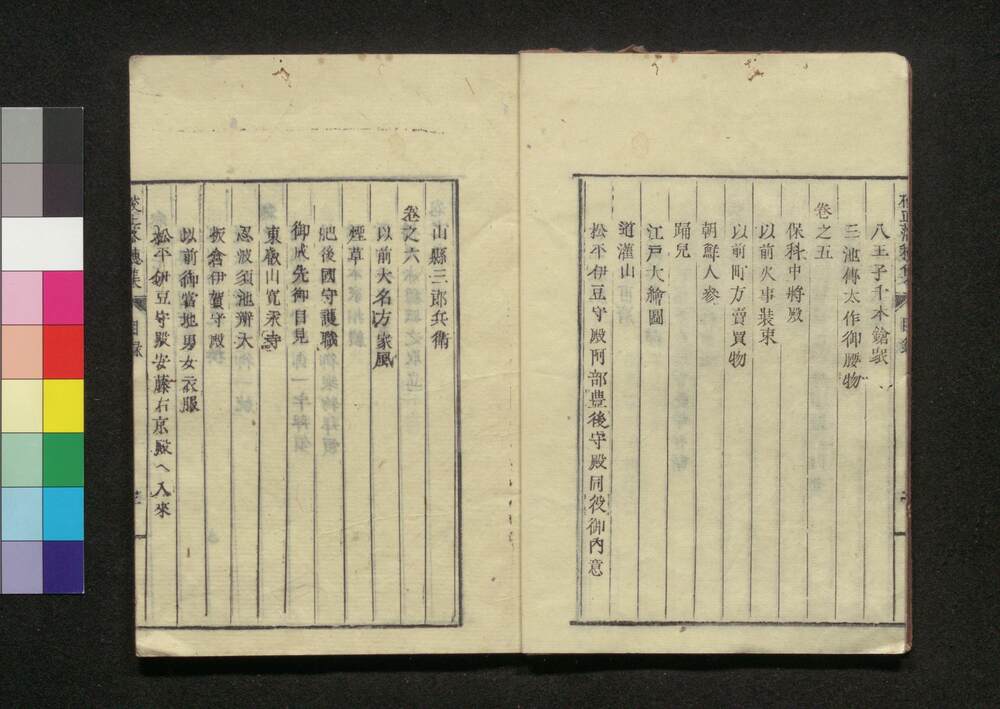 八王子千本鎗衆
三池傳太作御腰物
卷之五
保科中將殿
以前火事装束
以前町方賣買物
朝鮮人參
踊兒
江戸大繪圖
道灌山
松平伊豆守殿阿部豊後守殿同役御内意
山縣三郎兵衛
卷之六
以前大名方家風
煙草
肥後國守護職
御成先御目見
東叡山寛永寺
忍波須池辨天
板倉伊賀守殿
以前御當地男女衣服
松平伊豆守殿安藤右京殿へ入來
目録